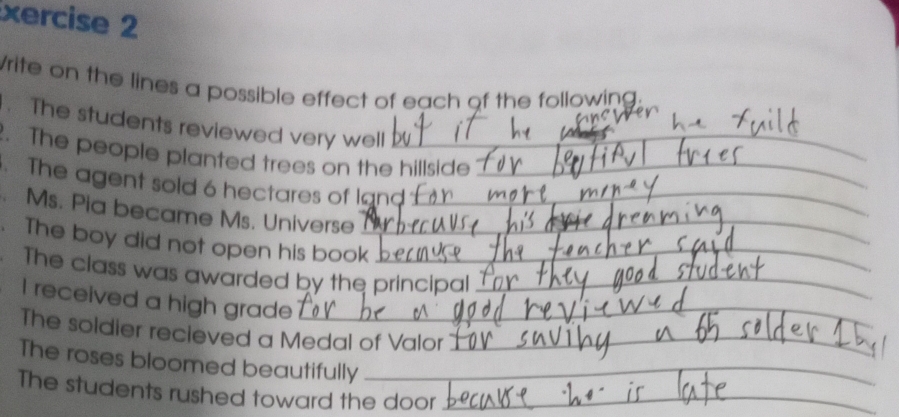 Exercise 2
Write on the lines a possible effect of each of the following.
1. The students reviewed very well but if he answer he faild
2. The people planted trees on the hillside for beytiful tries
The agent sold 6 hectares of land for more money
Ms. Pia became Ms. Universe becuuse his dreaming
The boy did not open his book because the teacher said
The class was awarded by the principal for they good student
I received a high grade for be a good reviewed
The soldier recieved a Medal of Valor for saving a 65 solder
The roses bloomed beautifully
The students rushed toward the door because he is late